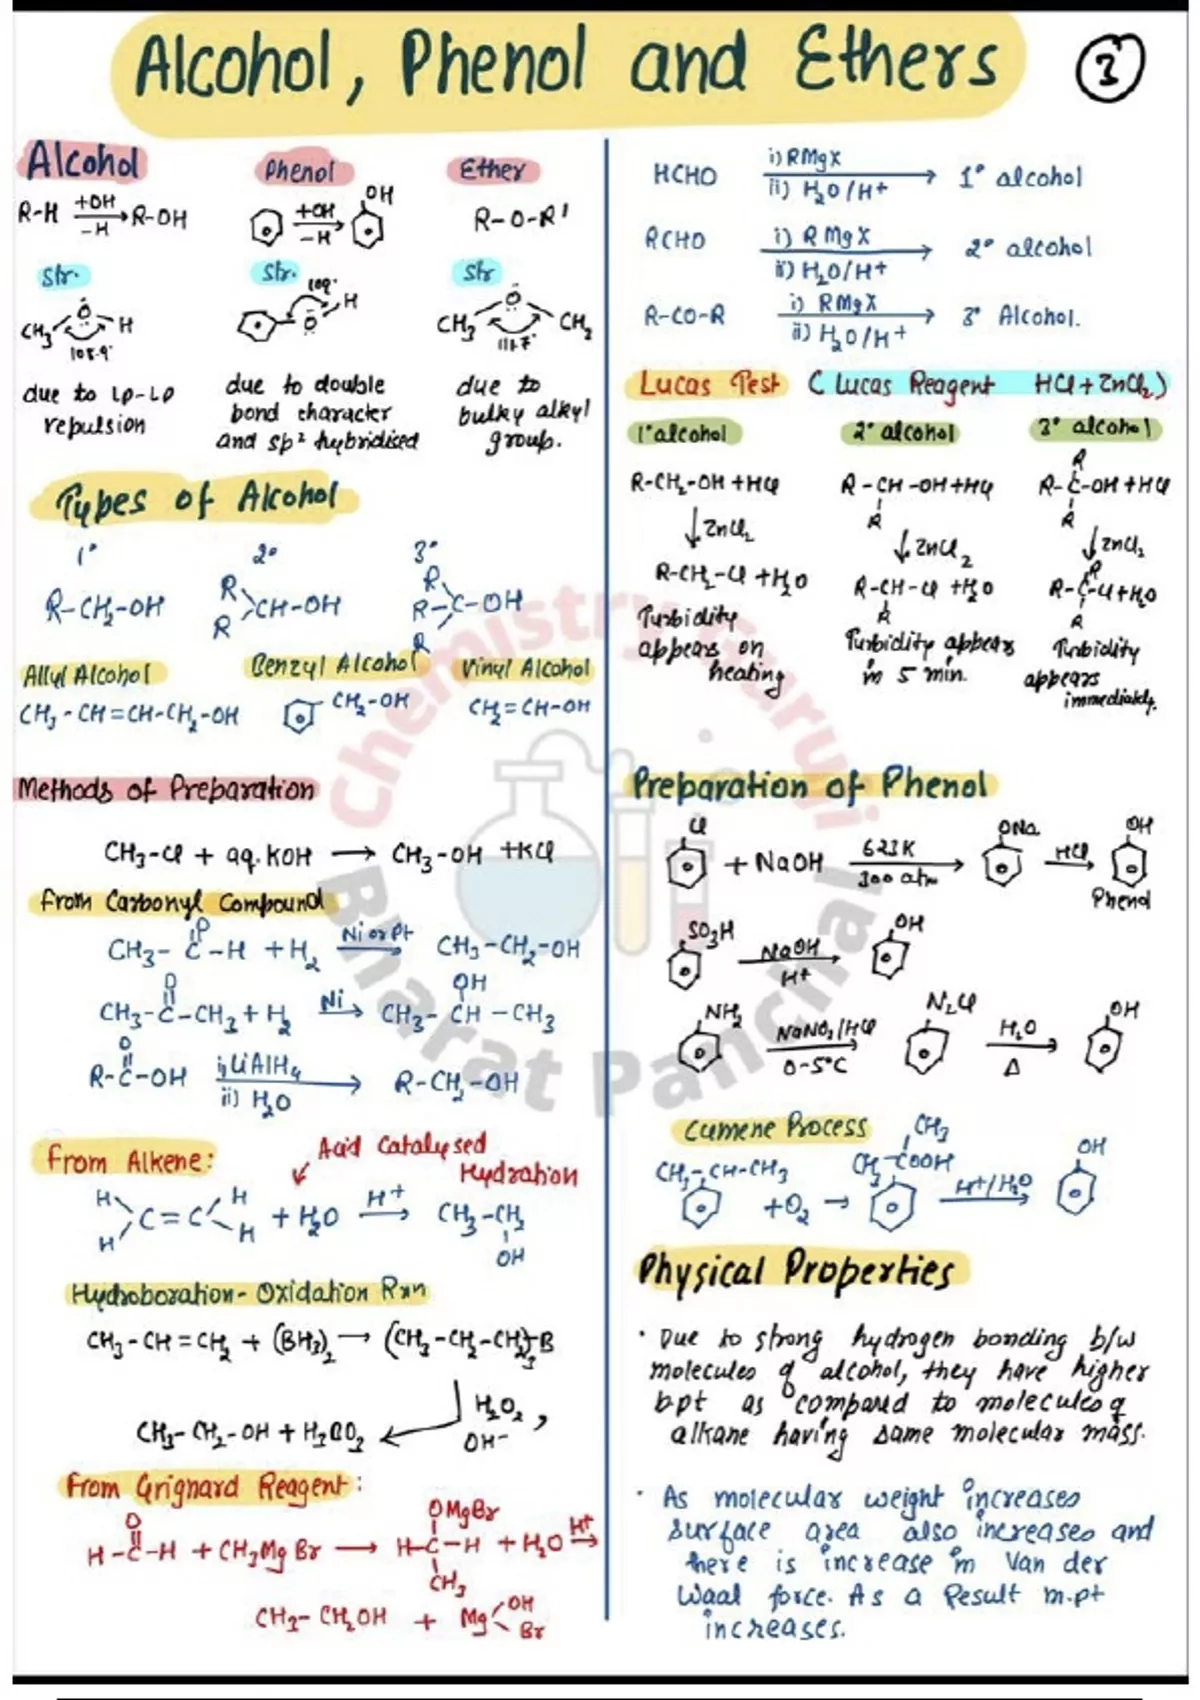 Alcohol, Phenol and Ethers
3
Alcohol
R-H +OH -H → R-OH
Str.
CH₃ Ö H
108.9°
due to lp-lp
repulsion
Phenol
+OH -H → OH
Str.
109°
Ö H
due to double
bond character
and sp² hybridised
Ether
R-O-R'
Str
CH₃ Ö CH₂
111.7°
due to
bulky alkyl
group.
Types of Alcohol
1° 2° 3°
R-CH₂-OH
R R >CH-OH
R R-C-OH R
Allyl Alcohol Benzyl Alcohol Vinyl Alcohol
CH₃-CH=CH-CH₂-OH CH₂-OH CH₂=CH-OH
Methods of Preparation
CH₃-Cl + aq.KOH → CH₃-OH +KCl
from Carbonyl Compound
CH₃-C(=O)-H + H₂ Ni or Pt → CH₃-CH₂-OH
CH₃-C(=O)-CH₃ + H₂ Ni → CH₃-CH(OH)-CH₃
R-C(=O)-OH i) LiAlH₄ ii) H₂O → R-CH₂-OH
From Alkene: Acid Catalysed
Hydration
H H C=C H H + H₂O H⁺ → CH₃-CH₂
OH
Hydroboration-Oxidation Rxn
CH₃-CH=CH₂ + (BH₃)₂ → (CH₃-CH₂-CH₂)₃B
H₂O₂,
OH⁻
CH₃-CH₂-OH + H₃BO₃ ←
From Grignard Reagent:
H-C(=O)-H + CH₃MgBr → H-C(OMgBr)(CH₃)-H + H₂O H⁺ →
CH₃-CH₂OH + Mg<OH Br
HCHO i) RMgX ii) H₂O/H+ → 1° alcohol
RCHO i) RMgX ii) H₂O/H+ → 2° alcohol
R-CO-R i) RMgX ii) H₂O/H+ → 3° Alcohol.
Lucas Test (Lucas Reagent HCl + ZnCl₂)
1° alcohol
R-CH₂-OH + HCl
↓ ZnCl₂
R-CH₂-Cl + H₂O
Turbidity
appears on
heating
2° alcohol
R-CH-OH + HCl
R
↓ ZnCl₂
R-CH-Cl + H₂O
R
Turbidity appears
in 5 min.
3° alcohol
R
R-C-OH + HCl
R
↓ ZnCl₂
R
R-C-Cl + H₂O
R
Turbidity
appears
immediately.
Preparation of Phenol
Cl + NaOH 623K 300 atm → ONa HCl → OH
Phenol
SO₃H NaOH H+ → OH
NH₂ NaNO₂/HCl 0-5°C → N₂Cl H₂O Δ → OH
Cumene Process
CH₃-CH-CH₃ + O₂ → CH₃ CH₃-COOH H+/H₂O → OH
Physical Properties
· Due to strong hydrogen bonding b/w
molecules of alcohol, they have higher
b.pt as compared to molecules of
alkane having same molecular mass.
· As molecular weight increases
surface area also increases and
there is increase in Van der
Waal force. As a Result m.pt
increases.
Chemistry Guruji
Bharat Panchal